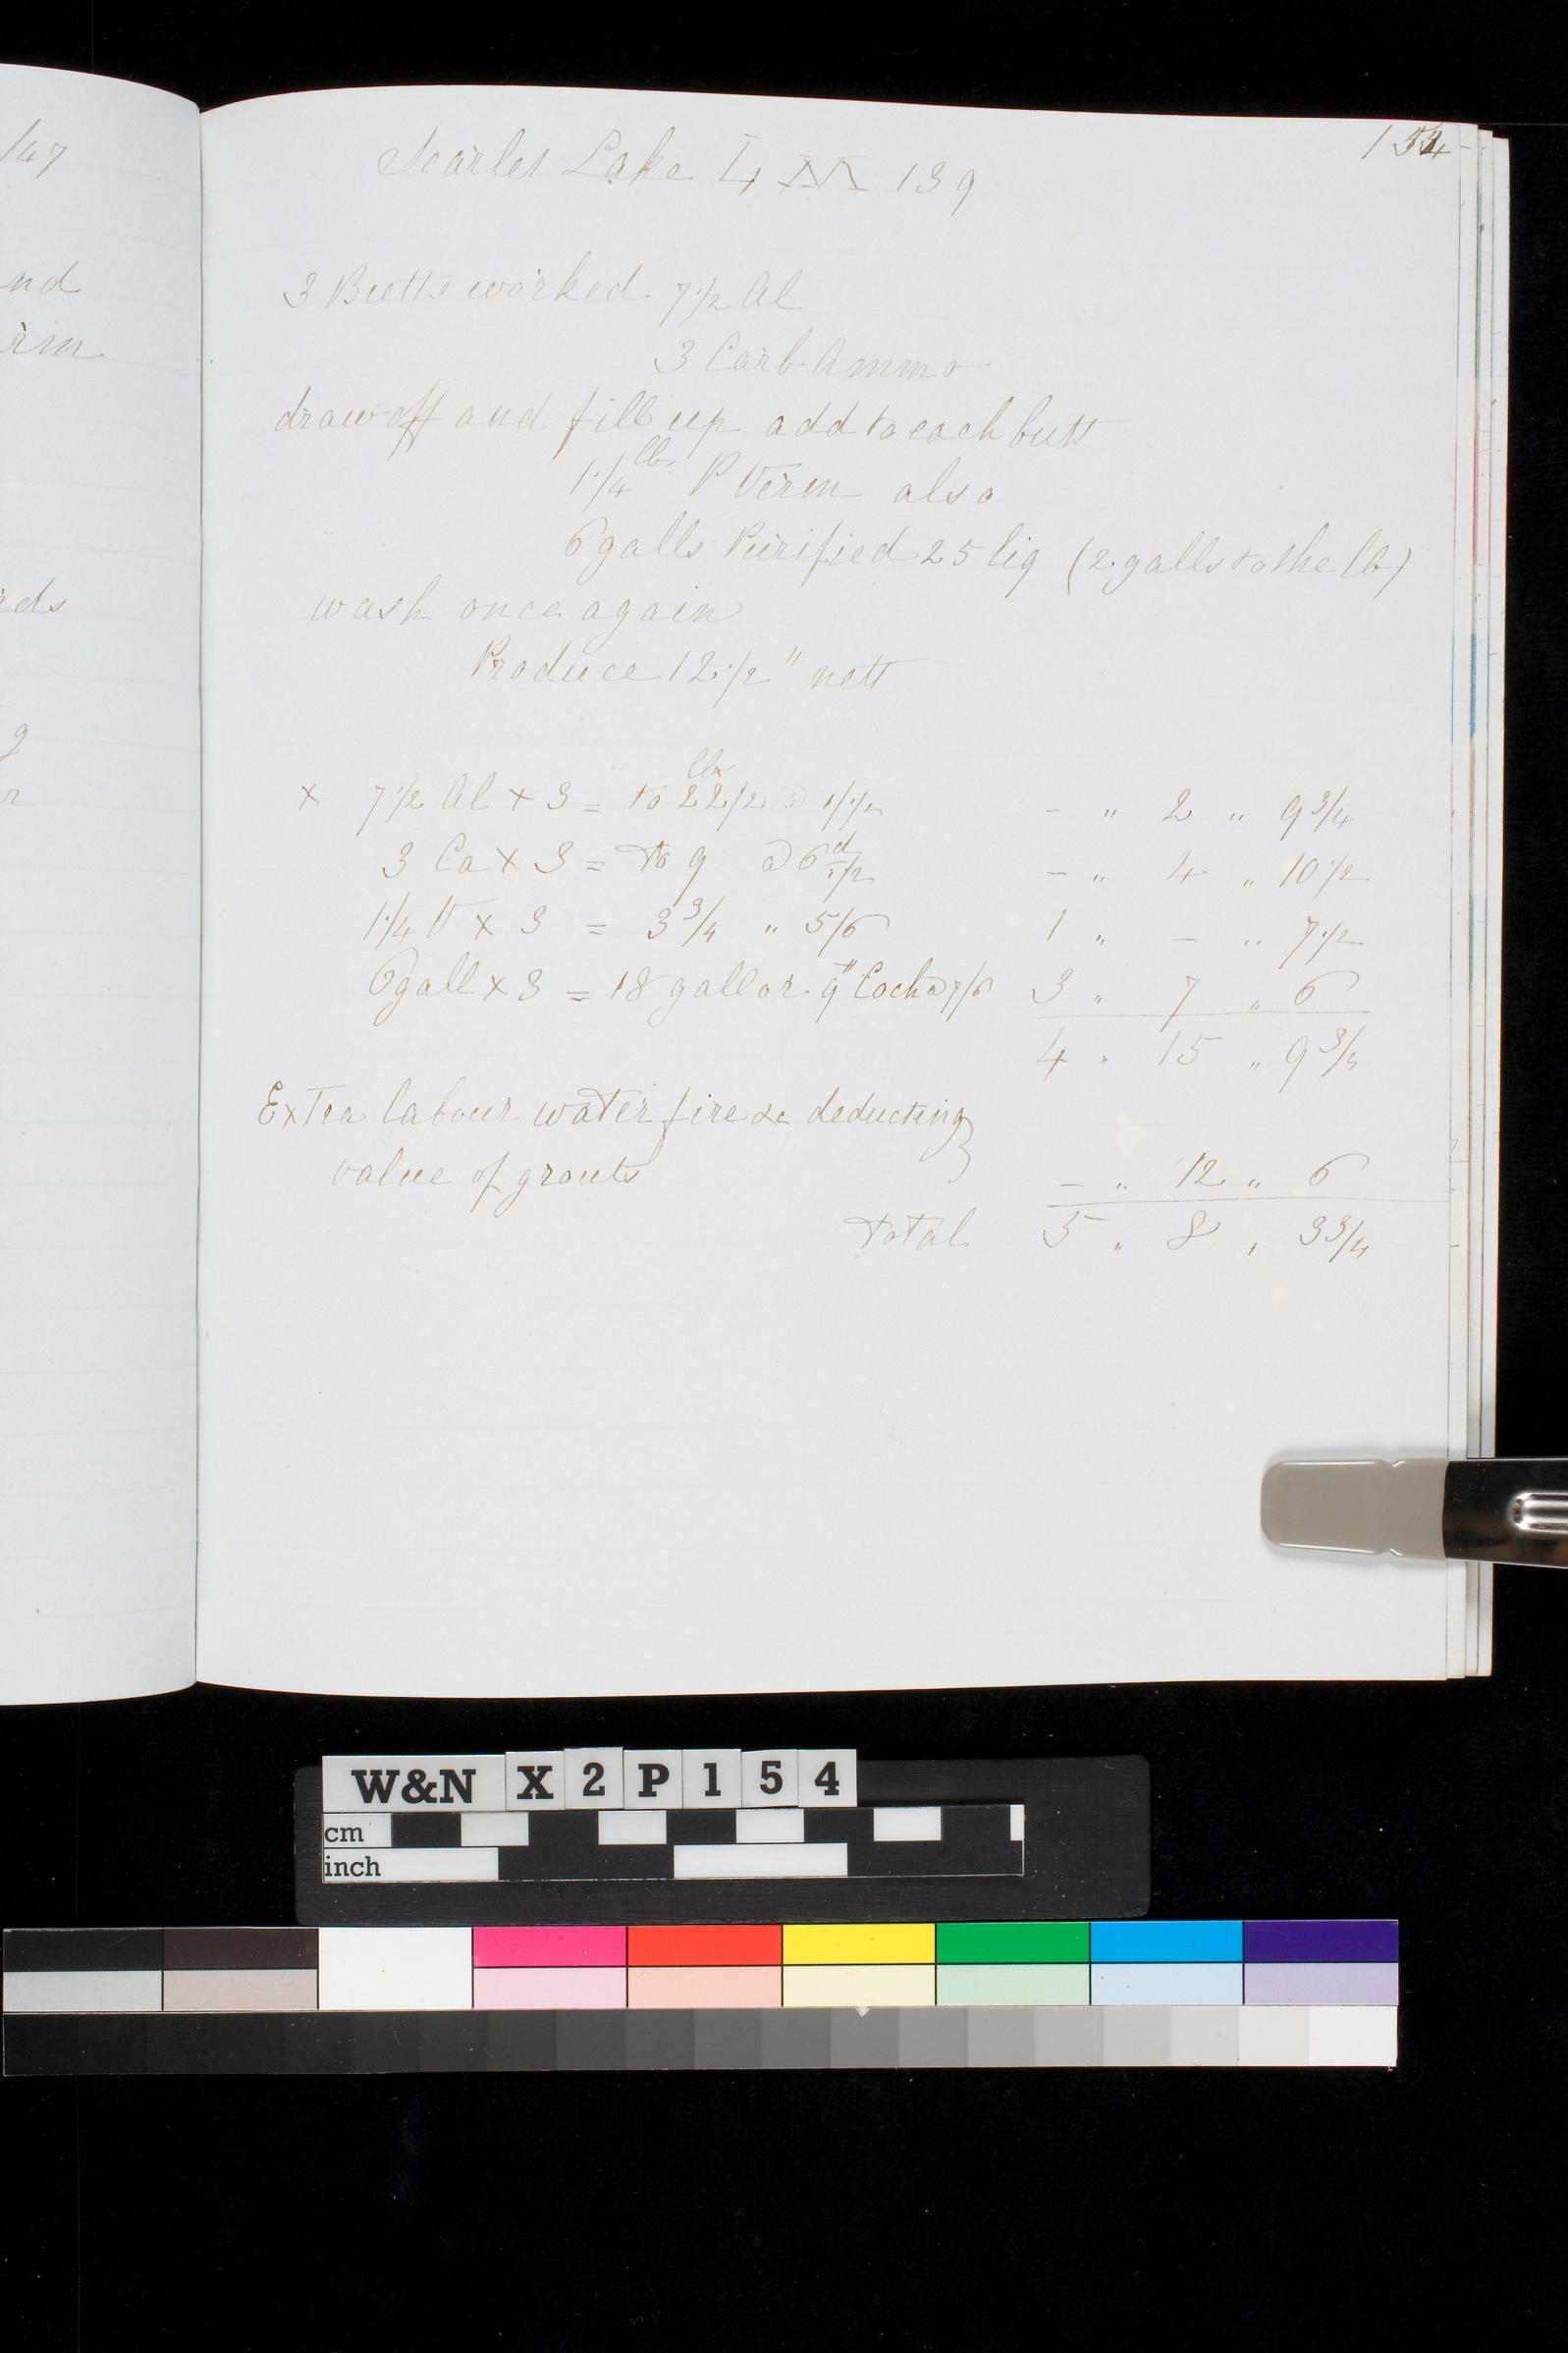 147
nd
irm
rds
g
r
154
Scarlet Lake L 139
3 Butts worked 7 1/2 Al
3 Carb Ammo
draw off and fill up add to each butt
1 1/4 lbs P Verm also
6 galls Purified 25 liq (2 galls to the lb)
wash once again
Produce 12 1/2 " nett
x 7 1/2 Al x 3 = to 22 1/2 lbs @ 1/1/2 - " 2 " 9 3/4
3 Ca x 3 = to 9 @ 6 d 1/2 - " 4 " 10 1/2
1 1/4 V x 3 = 3 3/4 " 5/6 1 " - " 7 1/2
6 gall x 3 = 18 gall or 9 " Coch @ 7/6 3 " 7 " 6
4 " 15 " 9 3/4
Extra labour water fire &c deducting }
value of grouts - " 12 " 6
total 5 " 8 " 3 3/4
W&N X2P154
cm
inch